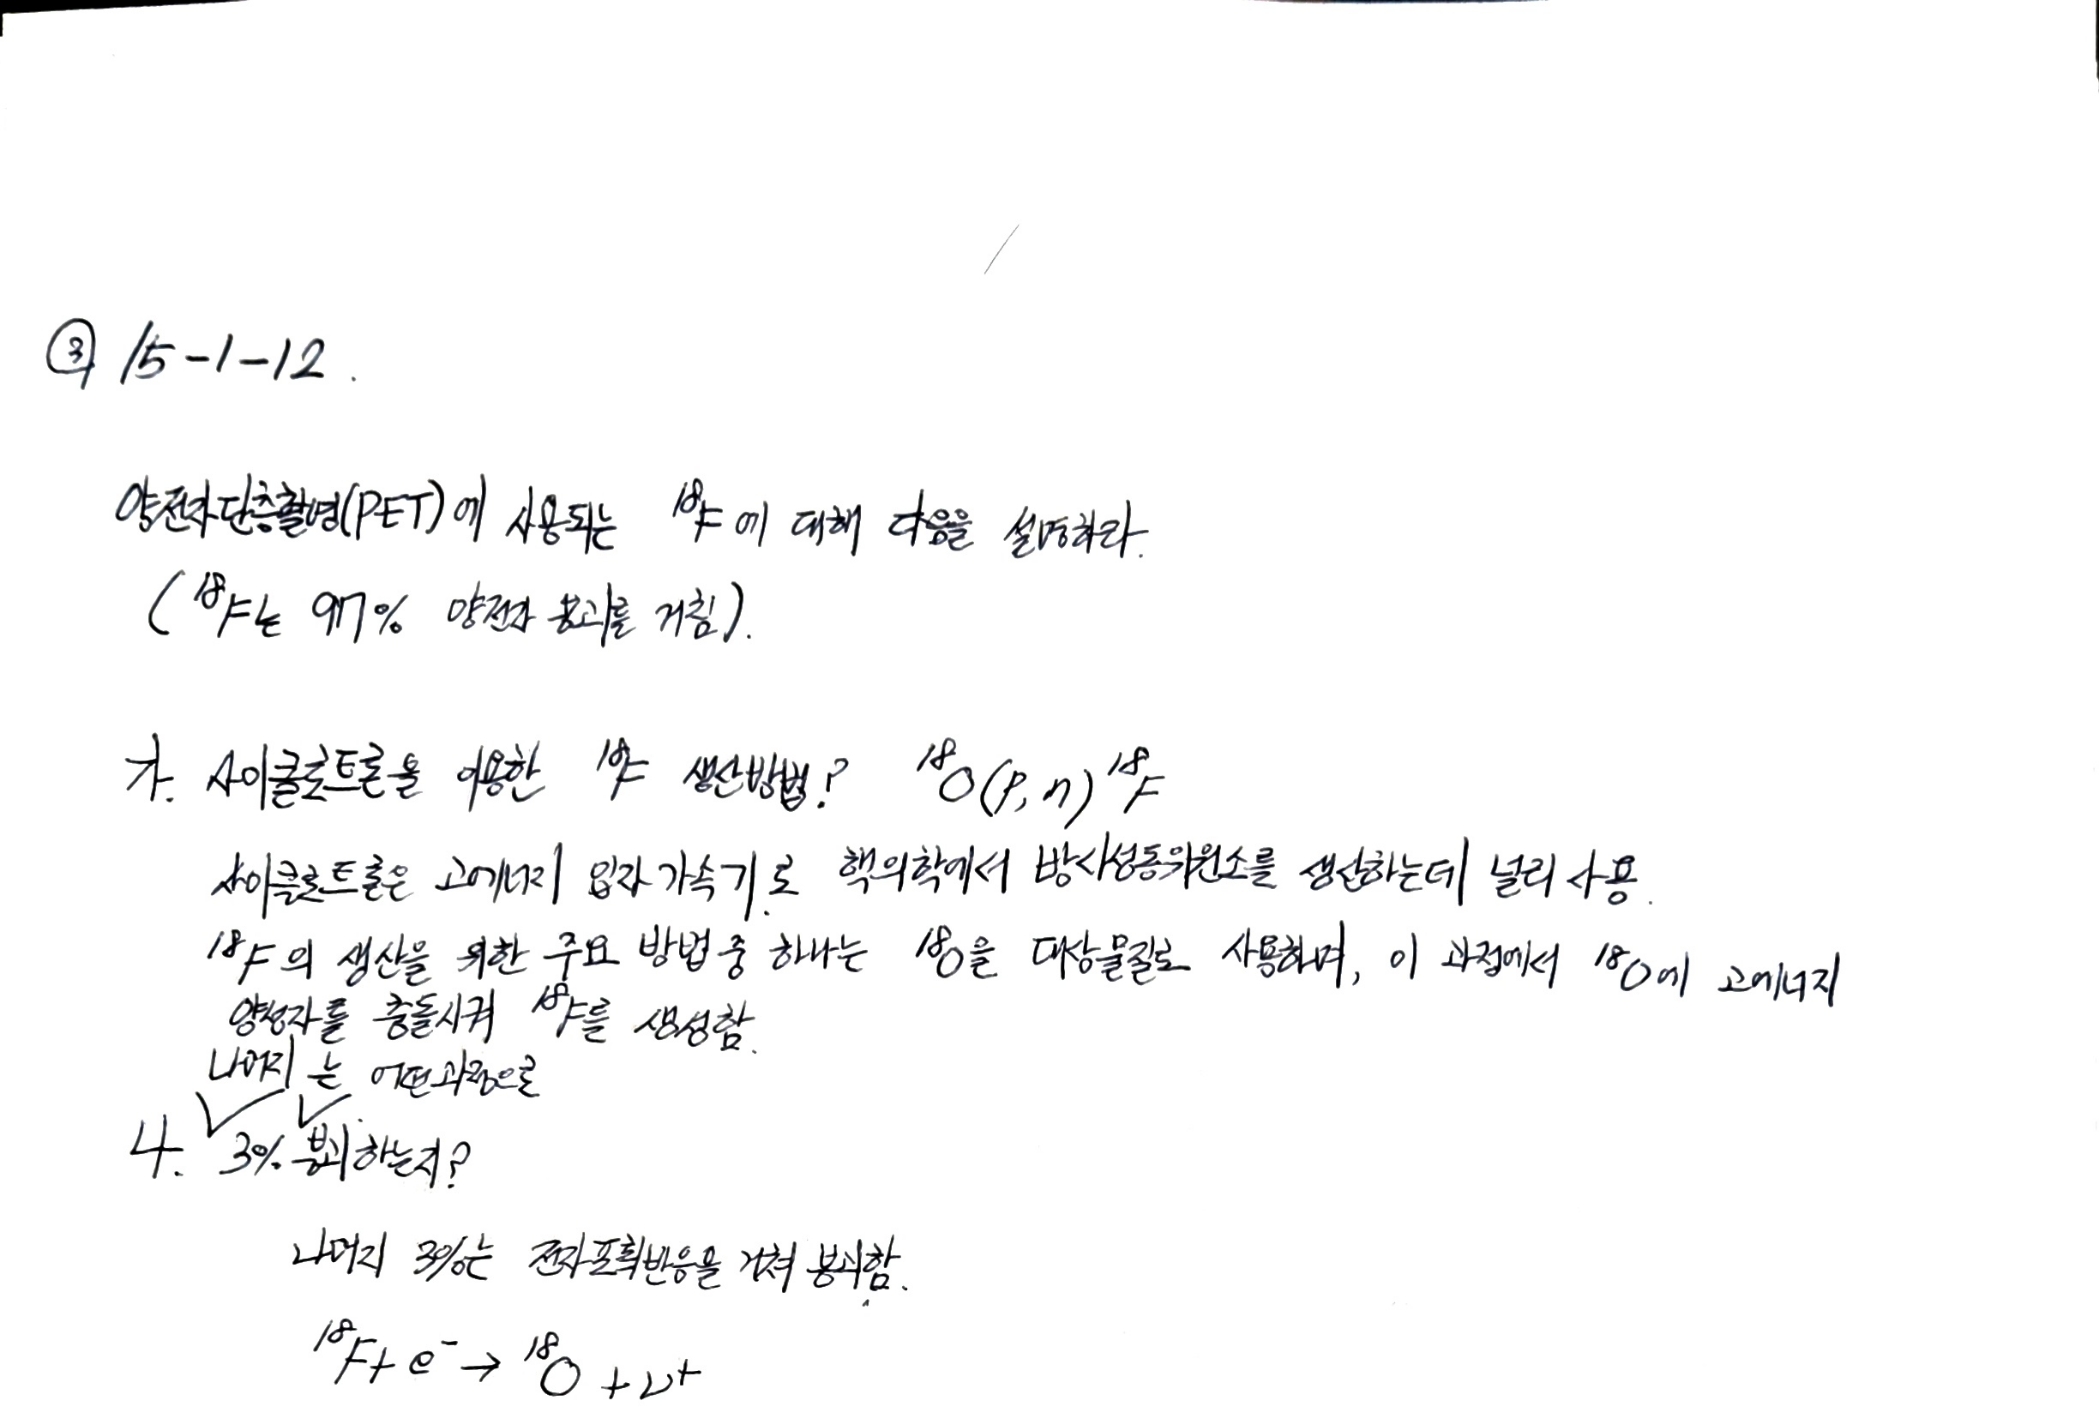 ③ 15-1-12.
양전자단층촬영(PET)에 사용되는 ¹⁸F에 대해 다음을 설명하라.
(¹⁸F는 97% 양전자 붕괴를 거침).
가. 사이클로트론을 이용한 ¹⁸F 생산방법? ¹⁸O(p,n)¹⁸F
사이클로트론은 고에너지 입자가속기로 핵의학에서 방사성동위원소를 생산하는데 널리 사용.
¹⁸F의 생산을 위한 주요 방법 중 하나는 ¹⁸O을 대상물질로 사용하며, 이 과정에서 ¹⁸O에 고에너지
양성자를 충돌시켜 ¹⁸F를 생성함.
나머지는 어떤과정으로
나. 3% 붕괴하는지?
나머지 3%는 전자포획반응을 거쳐 붕괴함.
¹⁸F + e⁻ → ¹⁸O + ν⁺